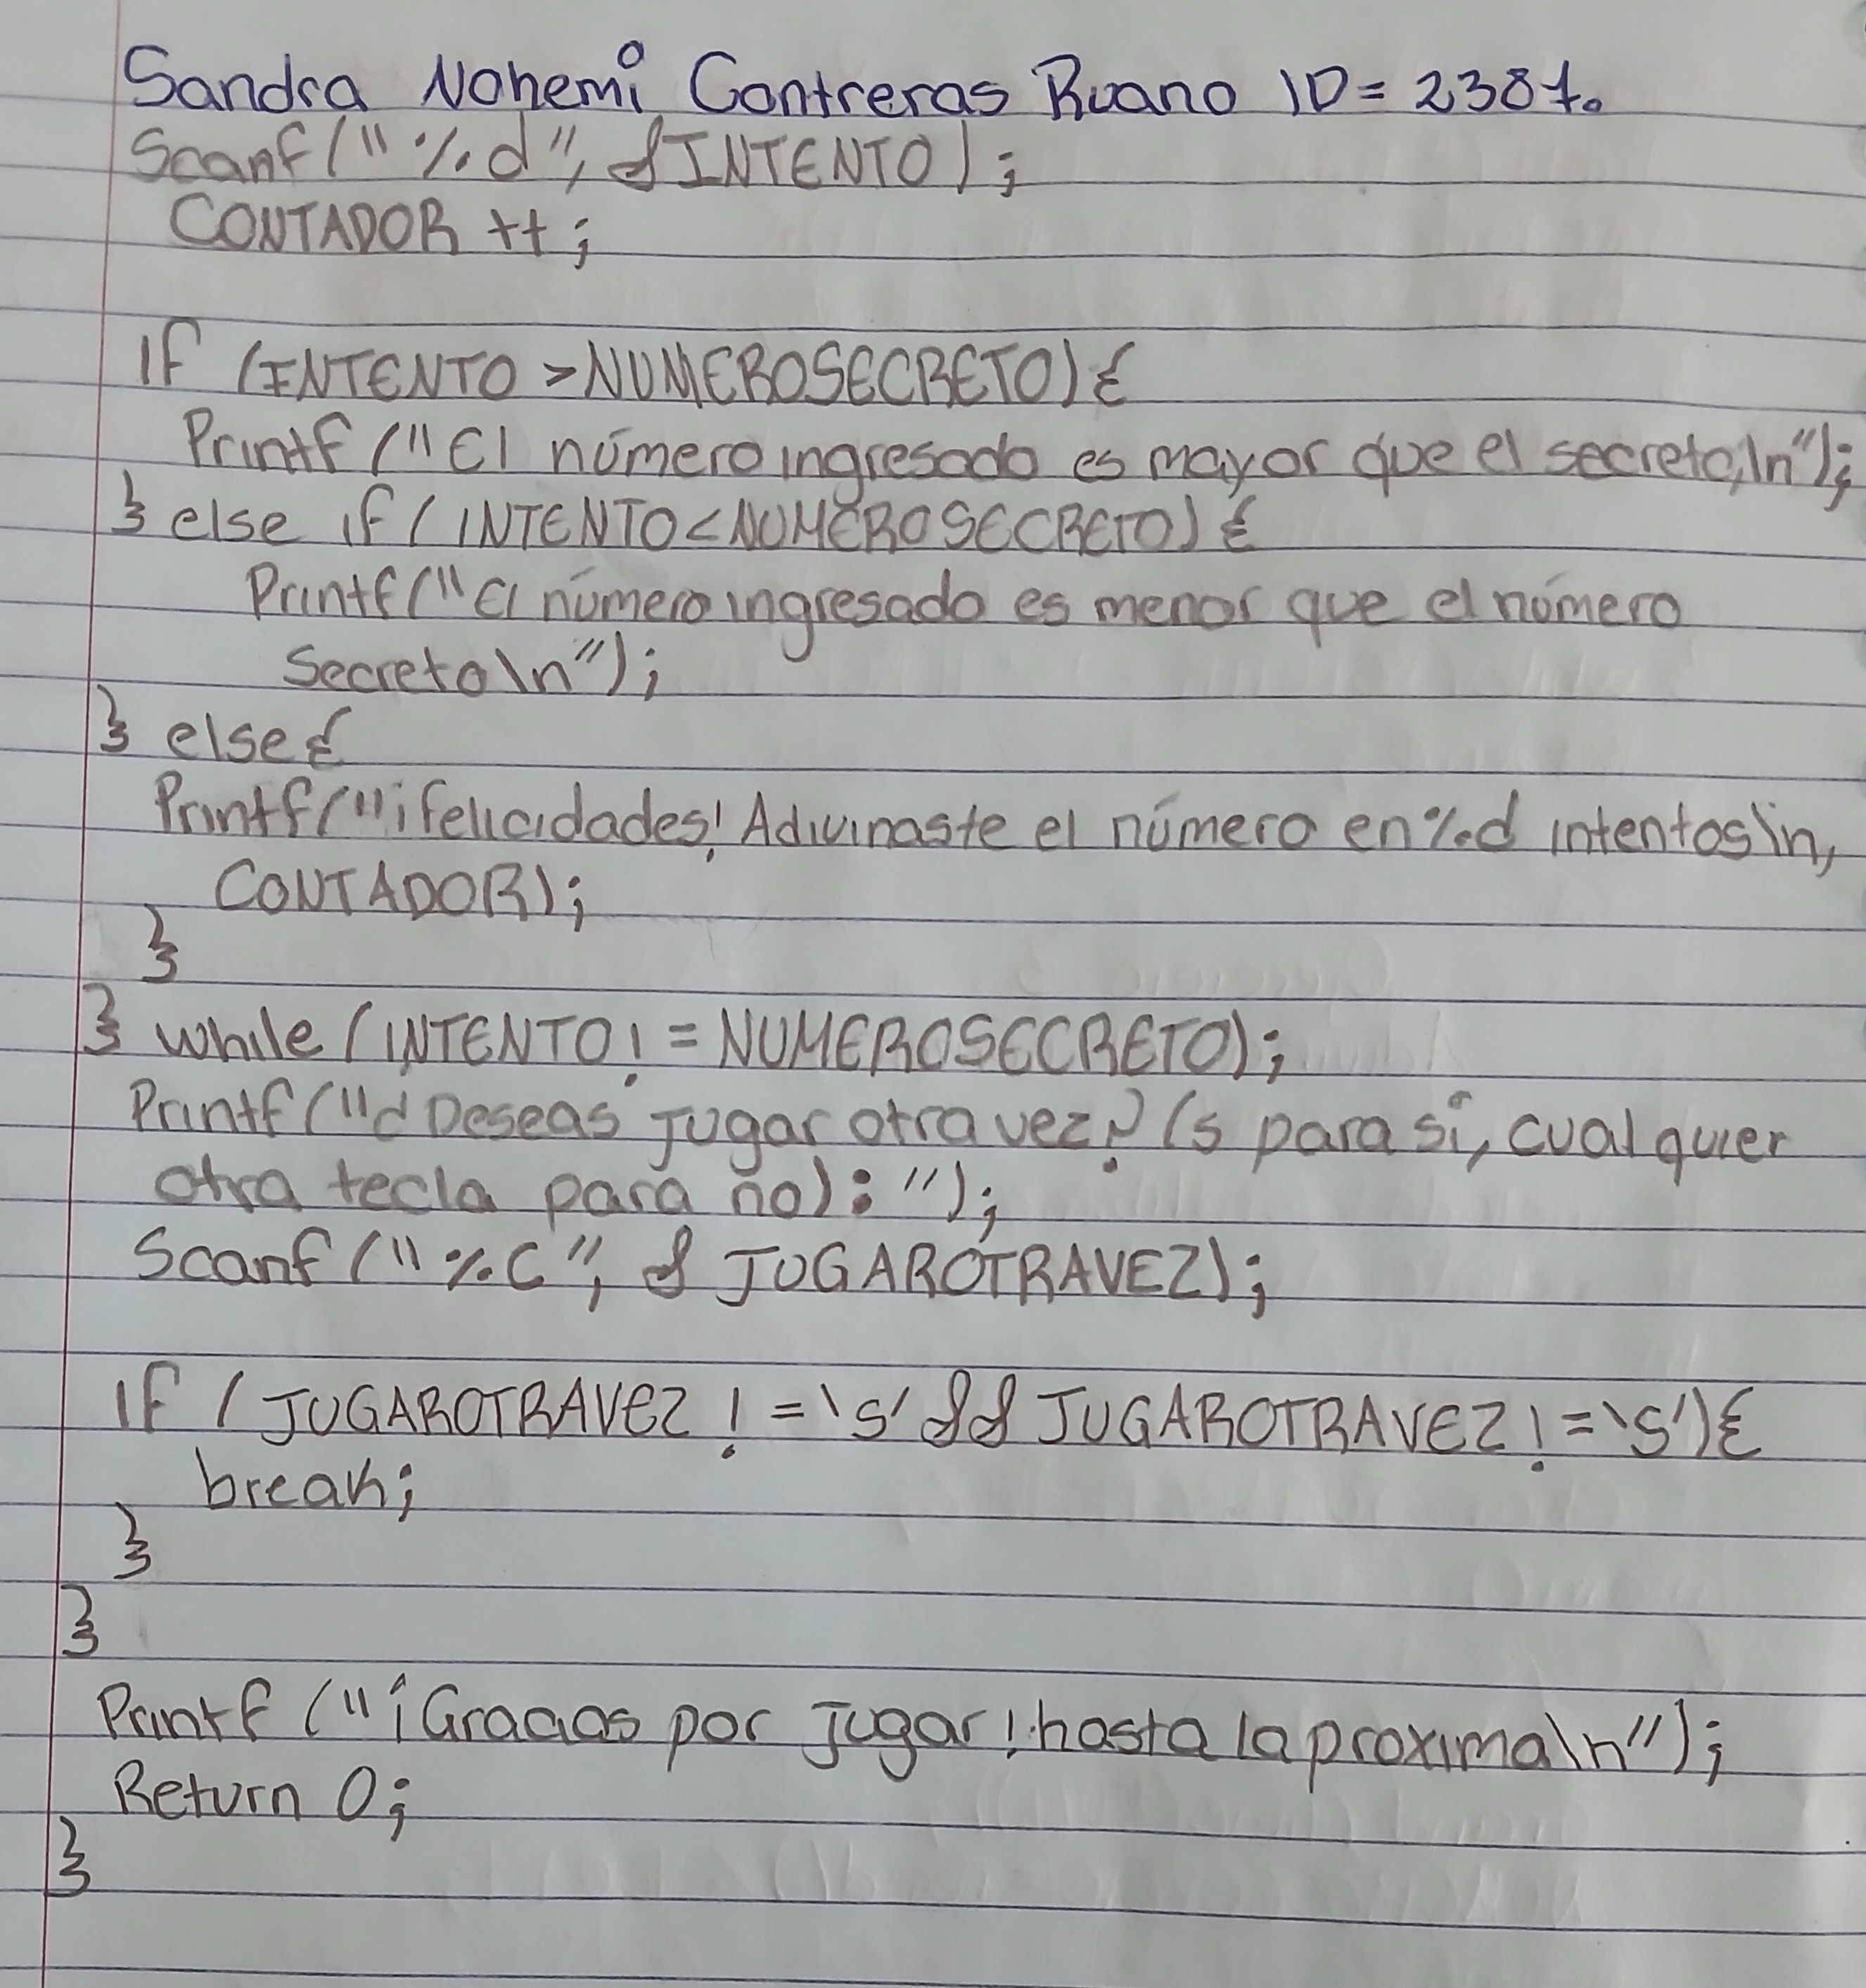 Sandra Nohemí Contreras Ruano ID= 2381.
Scanf("%d", &INTENTO);
CONTADOR ++;
IF (INTENTO >NUMEROSECRETO){
Printf ("El número ingresado es mayor que el secreto,\n");
} else if (INTENTO<NUMEROSECRETO) {
Printf("El número ingresado es menor que el número
Secreto\n");
} else{
Printf("¡felicidades! Adivinaste el número en %d intentos\n,
CONTADOR);
}
} while (INTENTO! = NUMEROSECRETO);
Printf("¿Deseas jugar otra vez? (s para sí, cualquier
otra tecla para no): ");
Scanf ("%c", & JUGAROTRAVEZ);
IF ( JUGAROTRAVEZ ! = 's' && JUGAROTRAVEZ ! = 'S'){
break;
}
}
Printf ("¡Gracias por jugar! hasta la proxima\n");
Return 0;
}